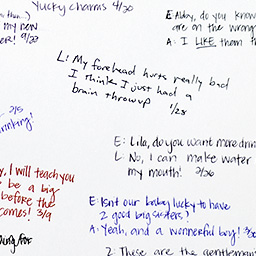 Yucky charms 4/30
my new
E: Abby, do you know
are on the wrong
A: I LIKE them th
L: My forehead hurts really bad
I thinks I just had a
brain throwup 1/28
2/5
drinking!
E: Lila, do you want more drin
L: No, I can make water
my mouth! 2/26
I will teach you
be a big
before the
comes! 3/9
E: Isn't our baby lucky to have
2 good big sisters?
A: Yeah, and a wonnerful boy!
2: These are the gentleman